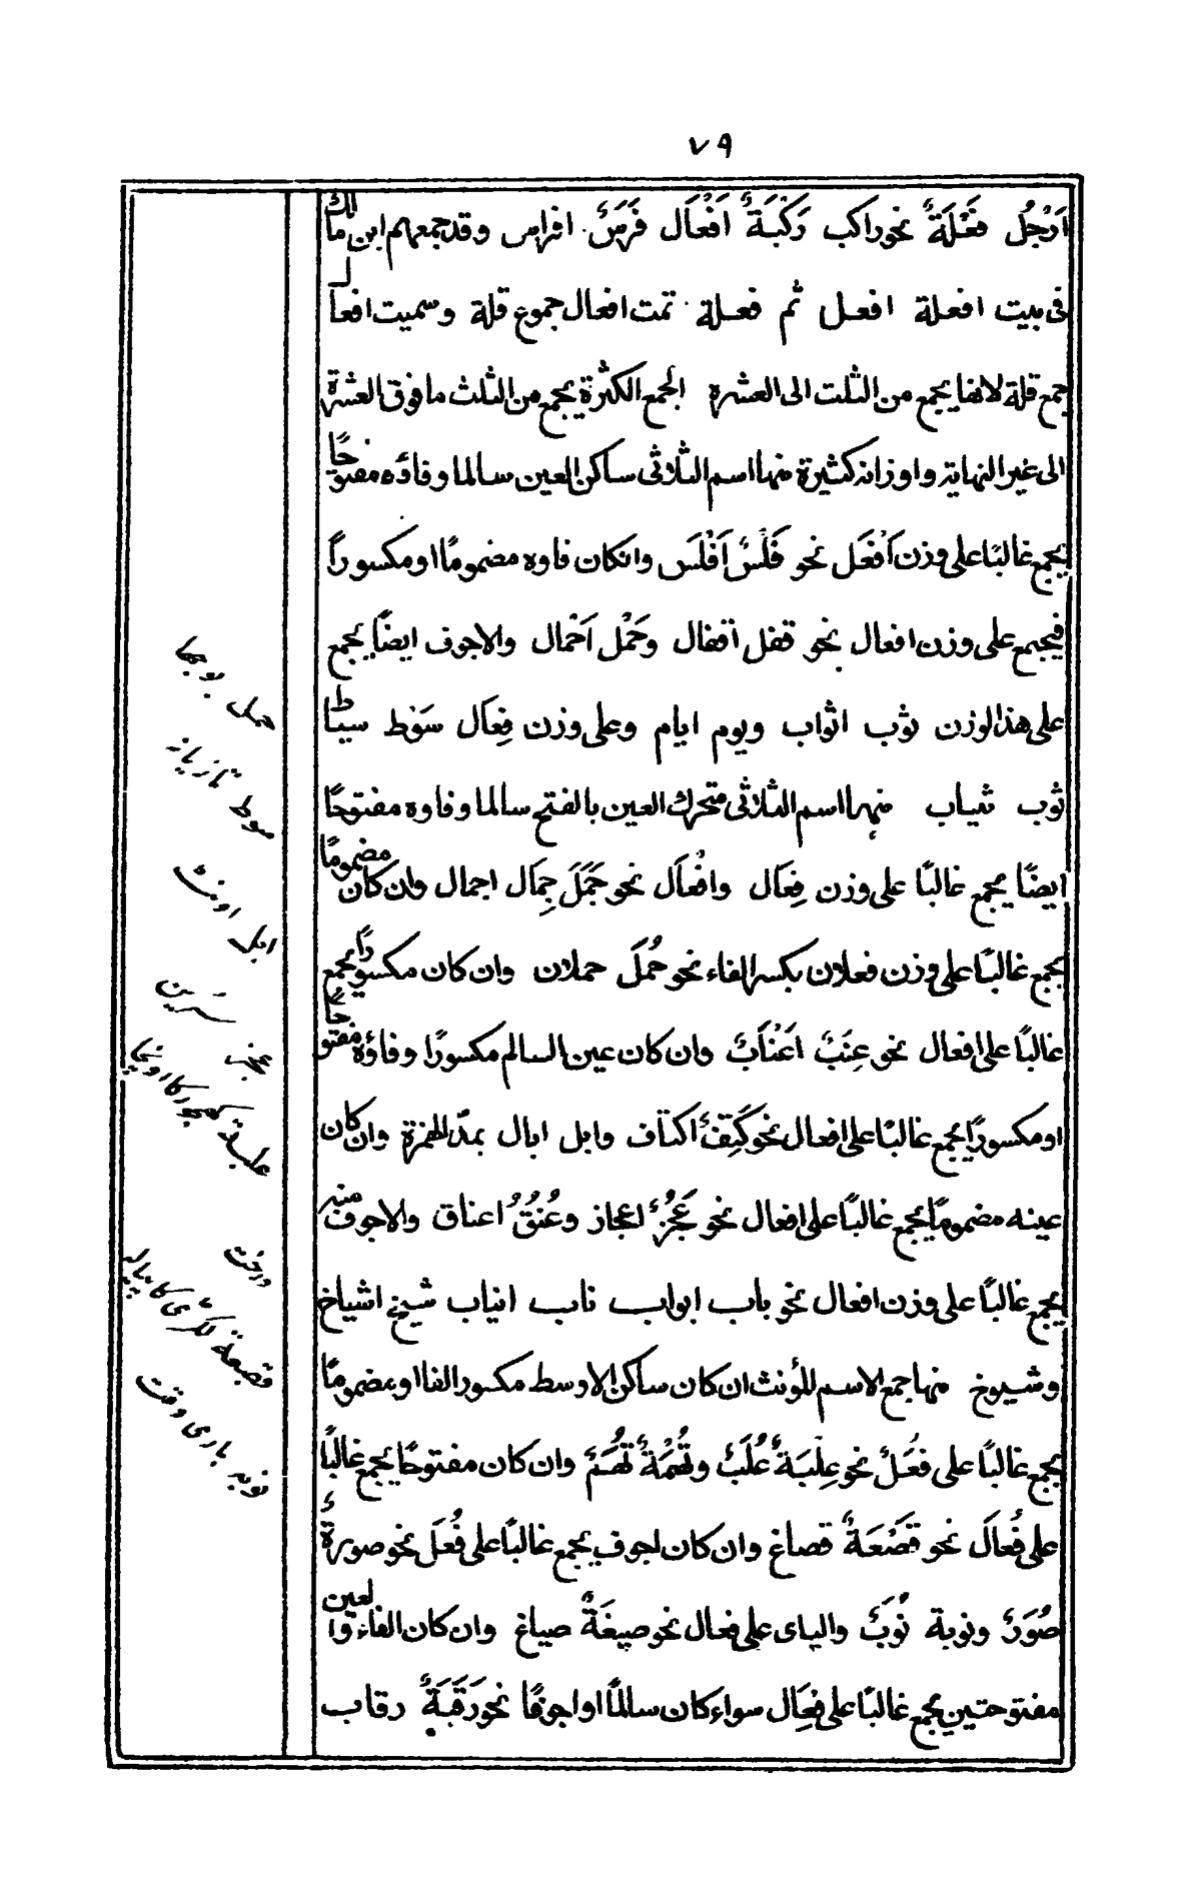 ٧٩
اَرْجُل فَعْلَةٌ نحو راكب رَكْبَةٌ اَفْعَال فَرَسٌ افراس وقد جمعهم ابن مالك
فى بيت افعلة افعل ثم فعلة تمت افعال جموع قلة وسميت افعال
جمع قلة لانها يجمع من الثلث الى العشرة الجمع الكثرة يجمع من الثلث ما فوق العشرة
الى غير النهاية واوزانه كثيرة منها اسم الثلاثى ساكن العين سالما وفاؤه مفتوحًا
يجمع غالبًا على وزن اَفْعَل نحو فَلْسٌ اَفْلَس وانكان فاوه مضمومًا او مكسوراً
فيجمع على وزن افعال نحو قفل اقفال وحَمْل اَحْمال والاجوف ايضًا يجمع
على هذالوزن ثوب اثواب ويوم ايام وعلى وزن فِعَال سَوْط سياط
ثوب ثياب منها اسم الثلاثى متحرك العين بالفتح سالما وفاوه مفتوحًا
ايضًا يجمع غالبًا على وزن فِعَال وافْعَال نحو جَمَل جِمَال اجمال وان كان مضمومًا
يجمع غالبًا على وزن فعلان بكسر الفاء نحو حُمَل حملان وان كان مكسورًا يجمع
غالبًا على افعال نحو عِنَبٌ اَعْنَابٌ وان كان عين السالم مكسورًا وفاؤه مفتوحًا
او مكسورًا يجمع غالبًا على افعال نحو كَتِفٌ اكتاف وابل ابال بمدّ الهمزة وان كان
عينه مضمومًا يجمع غالبًا على افعال نحو عَجُزٌ اعجاز وعُنُقٌ اعناق والاجوف منه
يجمع غالبًا على وزن افعال نحو باب ابواب ناب انياب شيخ اشياخ
وشيوخ منها جمع الاسم للمؤنث ان كان ساكن الاوسط مكسور الفا او مضمومًا
يجمع غالبًا على فعَلٌ نحو عِلْبَةٌ عُلَبٌ وتُهْمَةٌ تُهَمٌ وان كان مفتوحًا يجمع غالبًا
على فُعَال نحو قَصْعَةٌ قصاغ وان كان اجوف يجمع غالبًا على فُعَل نحو صورةٌ
صُوَرٌ ونوبة نُوَبٌ والياى على فعال نحو صيغَةٌ صياغ وان كان الفاء والعين
مفتوحتين يجمع غالبًا على فِعَال سواء كان سالمًا او اجوفًا نحو رَقَبَةٌ رقاب
حمل بوجھا
سوط تازیانہ
ابل اونٹ
عجز سُرین
علبة کھجور کا
درخت
قصعة لکڑی کا پیالہ
نوبہ باری وقت